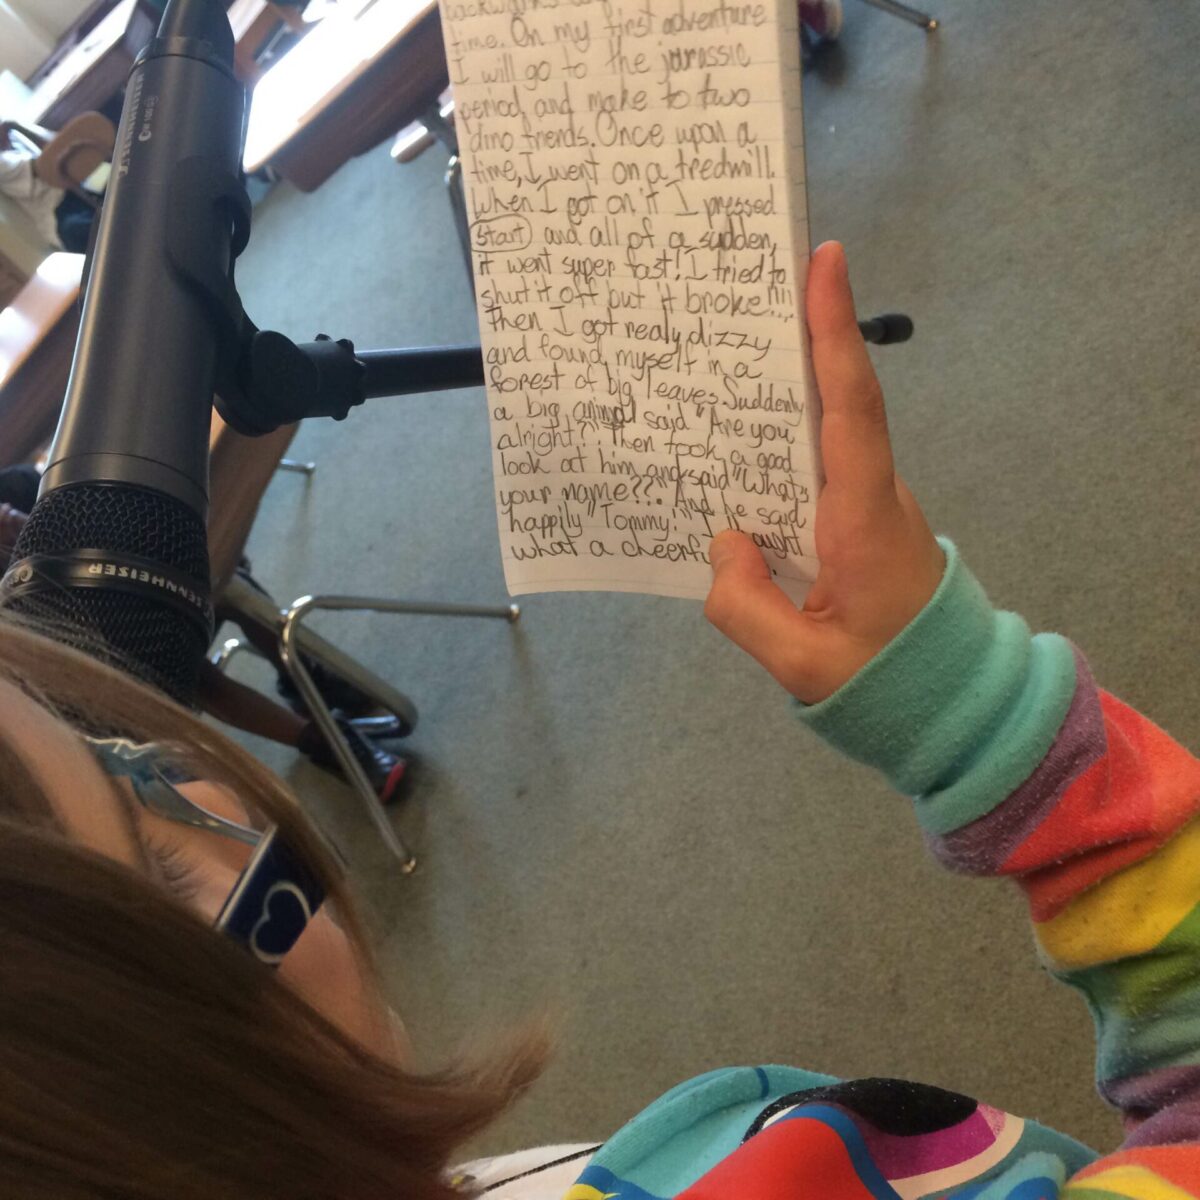 backwards
time. On my first adventure
I will go to the jarassic
period, and make to two
dino friends. Once upon a
time, I went on a tredmill.
When I got on it I pressed
start and all of a sudden,
it went super fast! I tried to
shut it off but it broke!!!!
Then I got realy dizzy
and found myself in a
forest of big leaves. Suddenly
a big animal said "Are you
alright?". Then took a good
look at him and said "What's
your name??". And he said
happily "Tommy!" I thought
what a cheerful
SENNHEISER